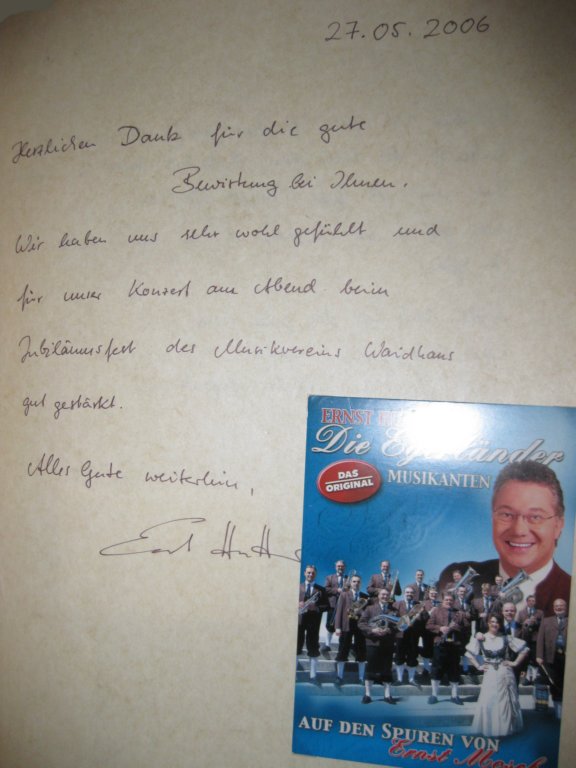 27.05.2006
Herzlichen Dank für die gute
Bewirtung bei Ihnen.
Wir haben uns sehr wohl gefühlt und
für unser Konzert am Abend beim
Jubiläumsfest des Musikvereins Waidhaus
gut gestärkt.
Alles Gute weiterhin,
Ernst Hutter
ERNST
Die Egerländer
MUSIKANTEN
DAS
ORIGINAL
AUF DEN SPUREN VON
Ernst Mosch